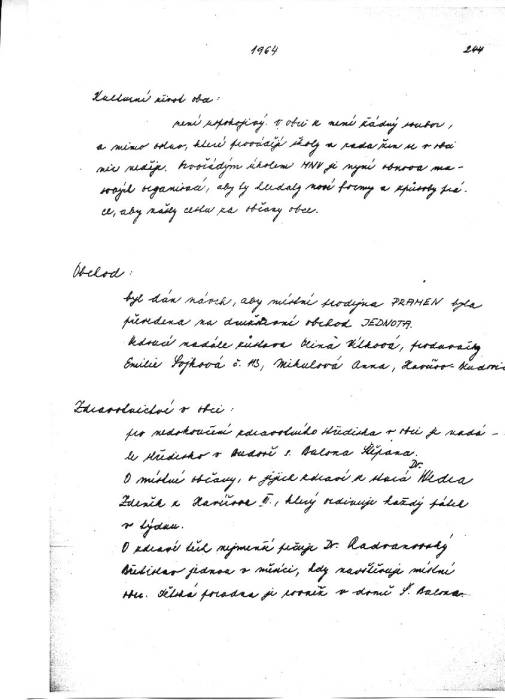 1964 244
Kulturní život obce:
není uspokojivý. V obci není žádný soubor,
a mimo oslav, které provádějí školy a rada žen se v obci
nic neděje. Prvořadým úkolem MNV je nyní obnova ma-
sových organisací, aby ty hledaly nové formy a způsoby prá-
ce, aby našly cestu za občany obce.
Obchod:
byl dán návrh, aby místní prodejna PRAMEN byla
převedena na družstevní obchod JEDNOTA.
Vedoucí nadále zůstává Vlková, prodavačky
Emilie Sojková č. 113, Mikulová Anna, Havířov-
Zdravotnictví v obci:
pro nedokončení zdravotního střediska v obci je nadá-
le středisko v budově s. Balona Štěpána.
O místní občany, o jejich zdraví se stará Dr.
Zdeněk z Havířova II., který ordinuje každý pátek
v týdnu.
O zdraví těch nejmenších pečuje Dr. Radvanovský
Břetislav jednou v měsíci, kdy navštěvuje místní
obec. Dětská poradna je rovněž v domě Š. Balona.